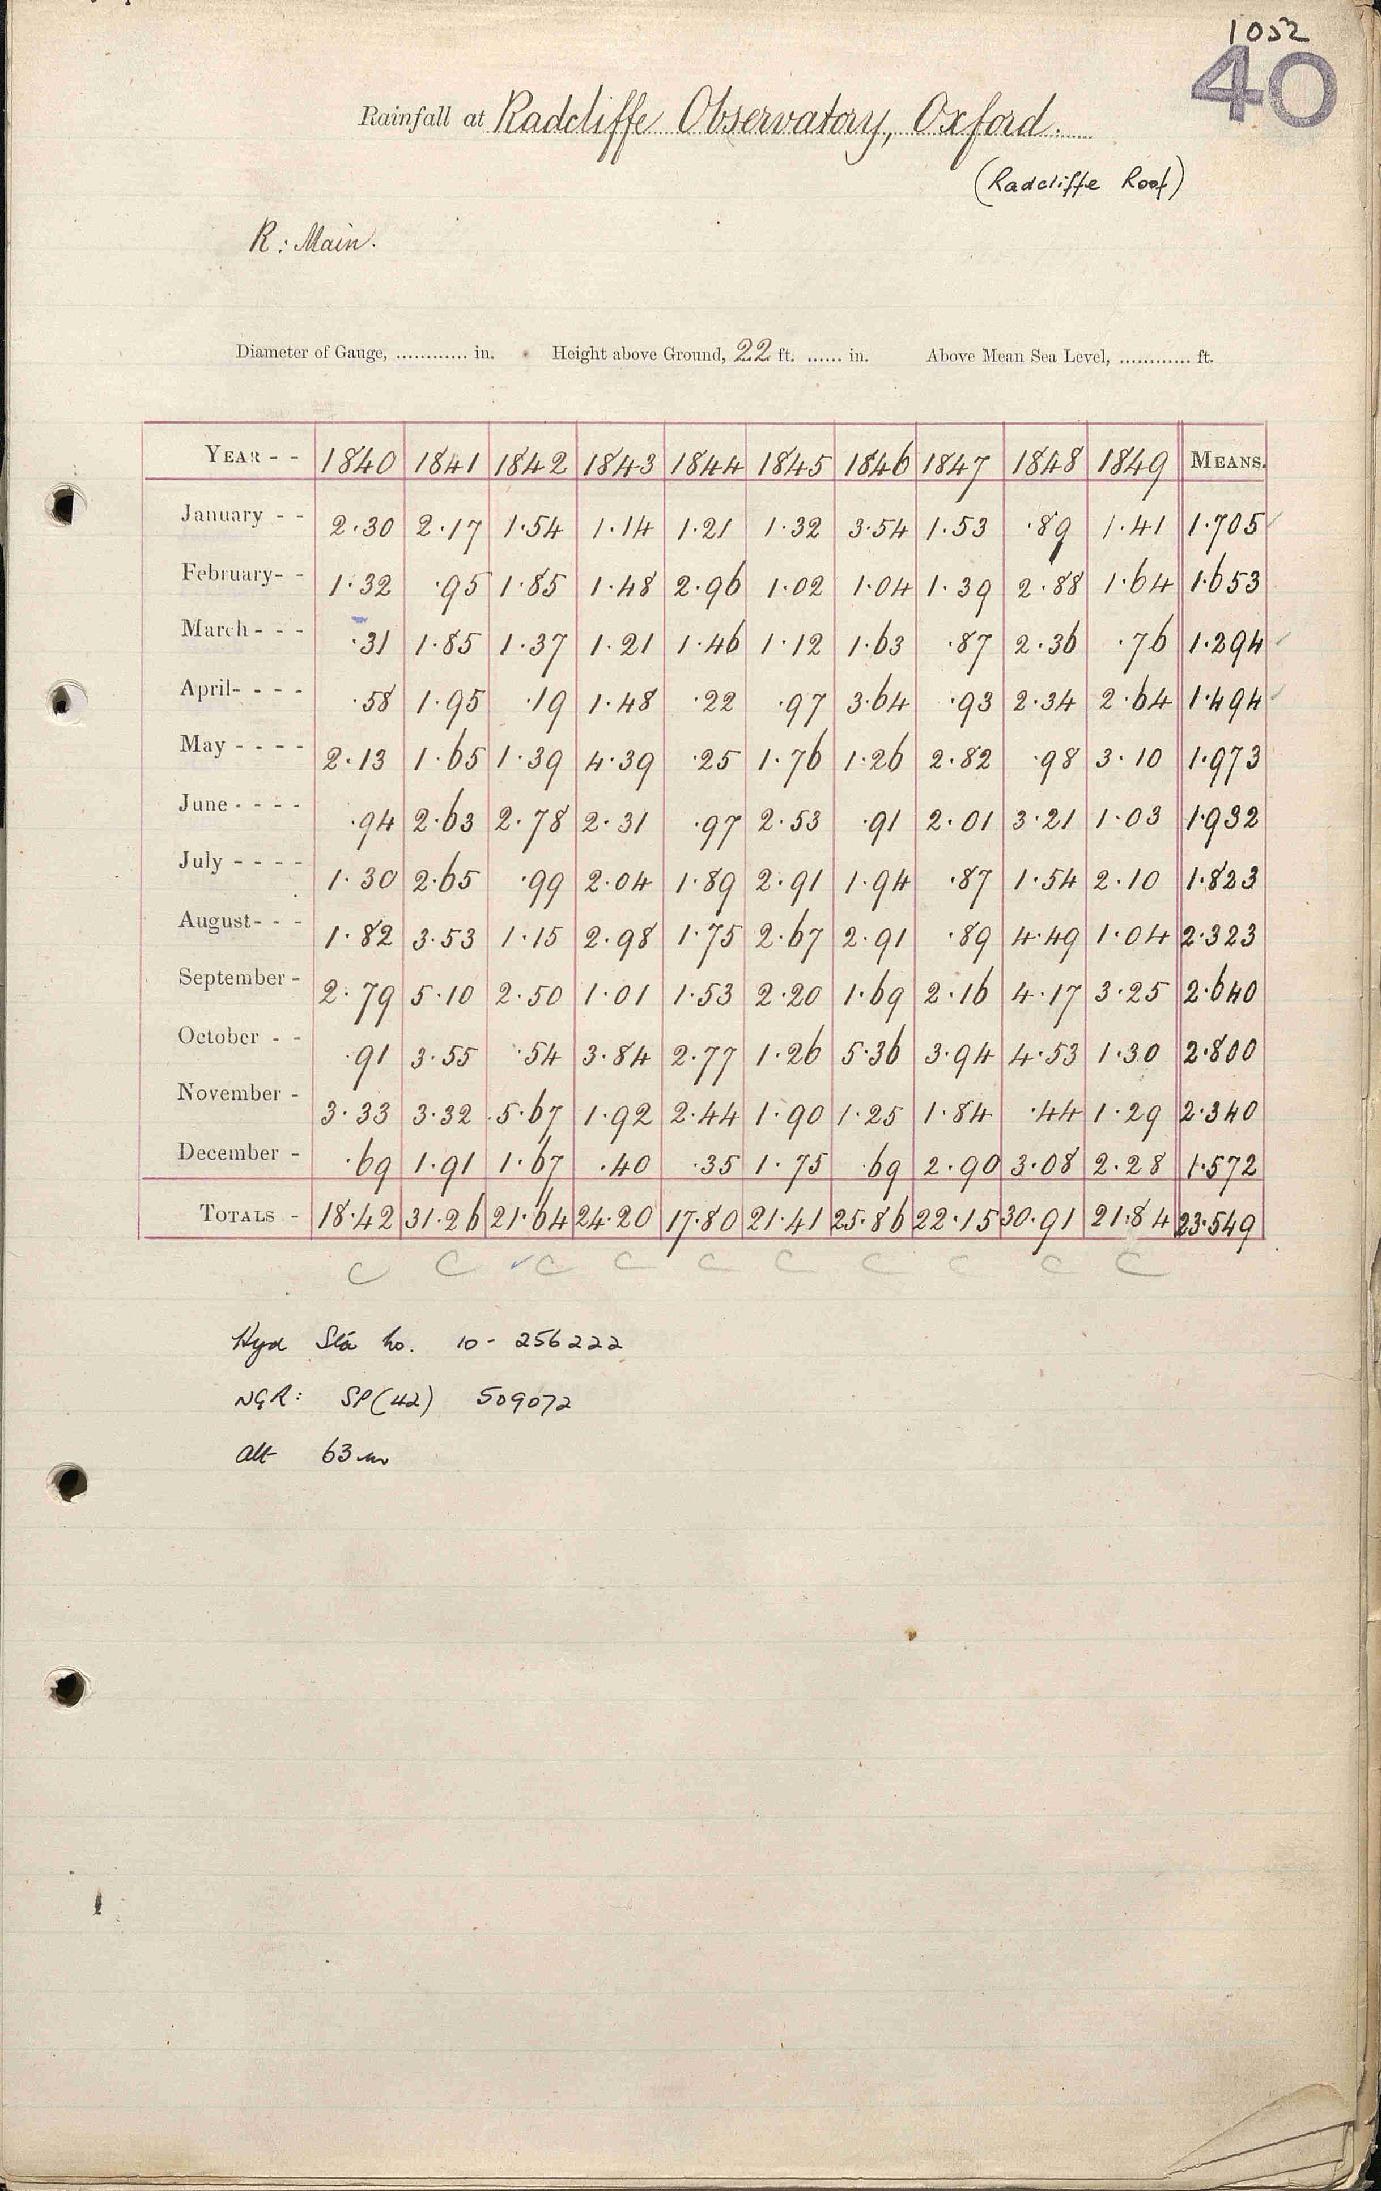 1052
40
Rainfall at Radcliffe Observatory, Oxford.
(Radcliffe Roof)
R: Main.
Diameter of Gauge, ............ in. Height above Ground, 22 ft. ...... in. Above Mean Sea Level, ............ ft.
YEAR - - 1840 1841 1842 1843 1844 1845 1846 1847 1848 1849 MEANS.
January - - 2.30 2.17 1.54 1.14 1.21 1.32 3.54 1.53 .89 1.41 1.705
February - - 1.32 .95 1.85 1.48 2.96 1.02 1.04 1.39 2.88 1.64 1.653
March - - - .31 1.85 1.37 1.21 1.46 1.12 1.63 .87 2.36 .76 1.294
April - - - - .58 1.95 .19 1.48 .22 .97 3.64 .93 2.34 2.64 1.494
May - - - - 2.13 1.65 1.39 4.39 .25 1.76 1.26 2.82 .98 3.10 1.973
June - - - - .94 2.63 2.78 2.31 .97 2.53 .91 2.01 3.21 1.03 1.932
July - - - - 1.30 2.65 .99 2.04 1.89 2.91 1.94 .87 1.54 2.10 1.823
August - - - 1.82 3.53 1.15 2.98 1.75 2.67 2.91 .89 4.49 1.04 2.323
September - 2.79 5.10 2.50 1.01 1.53 2.20 1.69 2.16 4.17 3.25 2.640
October - - .91 3.55 .54 3.84 2.77 1.26 5.36 3.94 4.53 1.30 2.800
November - 3.33 3.32 5.67 1.92 2.44 1.90 1.25 1.84 .44 1.29 2.340
December - .69 1.91 1.67 .40 .35 1.75 .69 2.90 3.08 2.28 1.572
TOTALS - 18.42 31.26 21.64 24.20 17.80 21.41 25.86 22.15 30.91 21.84 23.549
C C C C C C C C C C
Hyd Sta No. 10 - 256222
NGR: SP(42) 509072
alt 63m